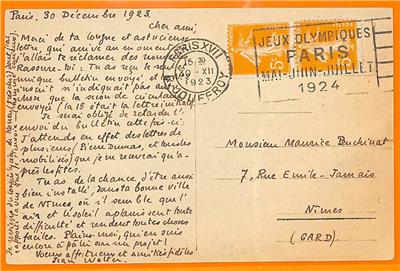 Paris, 30 Décembre 1923.
Cher ami,
Merci de ta longue et astucieuse
lettre, qui arrive au moment où
j'allais te réclamer des tampons.
Rassure-toi: Tu as reçu le
unique bulletin envoyé, et
n'indiquait pas autre
chose que la de circulaire
envoyée (la 18 était la lettre).
Je serai obligé de retarder l'
envoi du bulletin cette fois-ci:
J'attends en effet des lettres de
plusieurs (Pierre Dumas, et tous les
mobilisés) que je ne recevrai qu'a-
près les fêtes.
Tu as de la chance d'être aussi
bien installé, dans ta bonne ville
de Nîmes où il semble que l'
air et le soleil aplanissent toute
difficulté et rendent toutes choses
faciles. Plains-moi, qui en suis
encore à pâlir sur un projet!
Voeux affectueux et amitiés fidèles
Jean Walter
PARIS XVII
15 30
30 - XII
1923
R. JOUFFROY
JEUX OLYMPIQUES
PARIS
MAI-JUIN-JUILLET
1924
Monsieur Maurice Puchinat
7, Rue Emile-Jamais
Nîmes
(GARD).